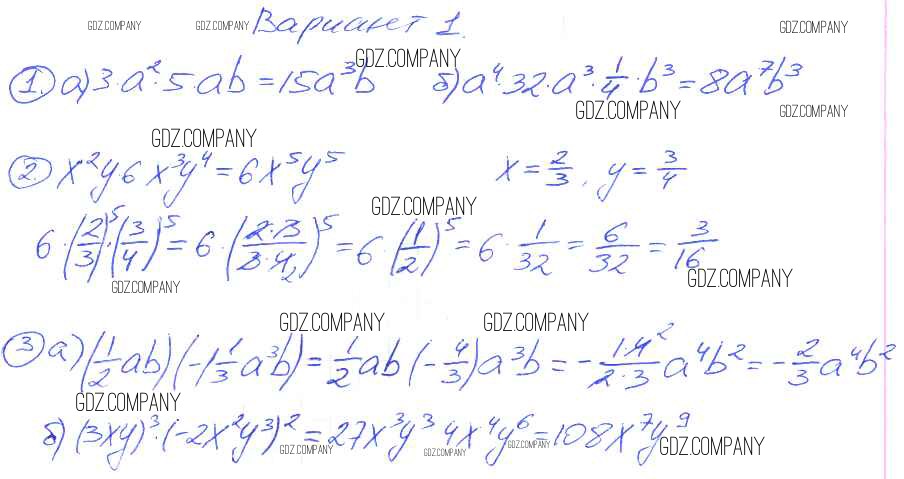 GDZ.COMPANY GDZ.COMPANY Вариант 1. GDZ.COMPANY
GDZ.COMPANY
1. а) 3·a²·5·ab = 15a³b б) a⁴·32·a³·1/4·b³ = 8a⁷b³
GDZ.COMPANY GDZ.COMPANY
GDZ.COMPANY
2. x²y·6x³y⁴ = 6x⁵y⁵ x = 2/3, y = 3/4
GDZ.COMPANY
6·(2/3)⁵·(3/4)⁵ = 6·(2·3/3·4₂)⁵ = 6·(1/2)⁵ = 6·1/32 = 6/32 = 3/16
GDZ.COMPANY GDZ.COMPANY
GDZ.COMPANY GDZ.COMPANY
3 а) (1/2ab)(-1 1/3a³b) = 1/2ab(-4/3)a³b = -1·4²/2·3 a⁴b² = -2/3a⁴b²
GDZ.COMPANY
б) (3xy)³·(-2x²y³)² = 27x³y³ 4x⁴y⁶ = 108x⁷y⁹
GDZ.COMPANY GDZ.COMPANY GDZ.COMPANY GDZ.COMPANY